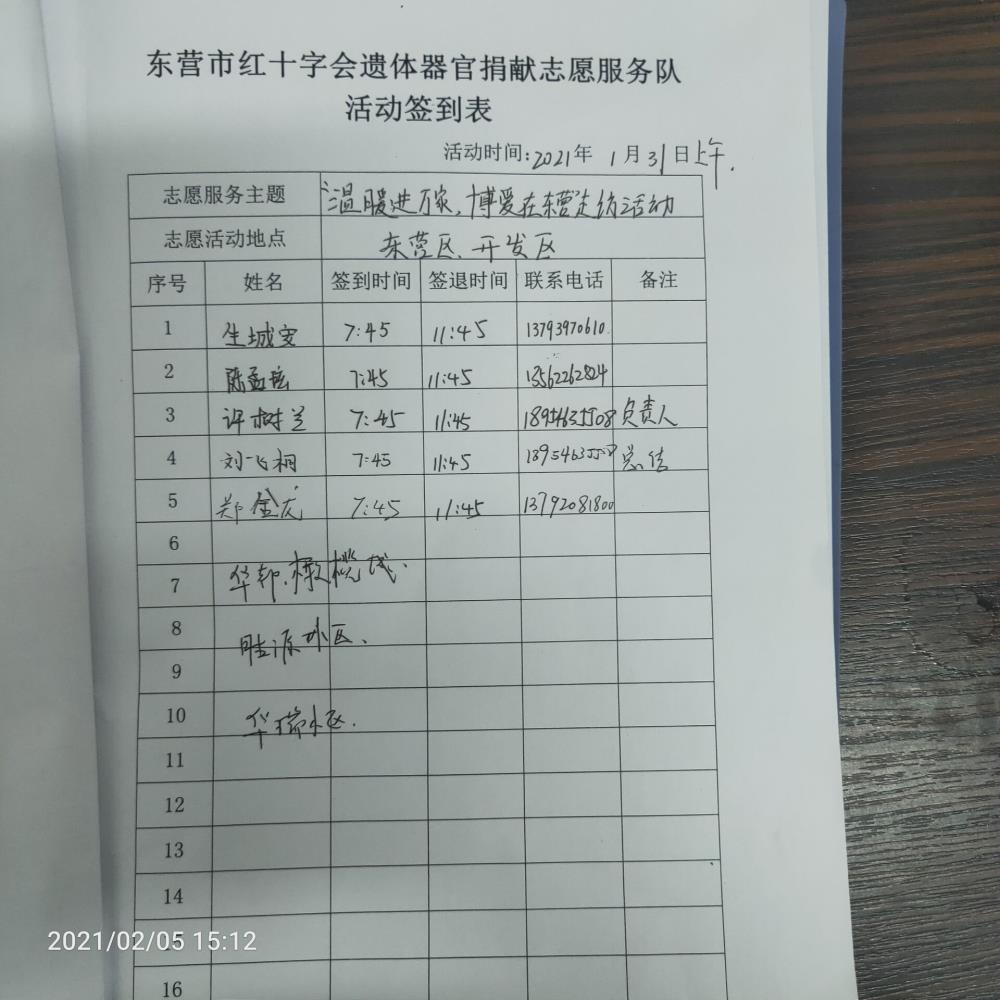 东营市红十字会遗体器官捐献志愿服务队
活动签到表
活动时间:2021年 1月31日上午.
志愿服务主题 "温暖进万家,博爱在东营走访活动
志愿活动地点 东营区、开发区
序号 姓名 签到时间 签退时间 联系电话 备注
1 生城安 7:45 11:45 13793970610
2 陈孟 7:45 11:45
3 许树兰 7:45 11:45 18954635508 负责人
4 刘飞桐 7:45 11:45
5 郑金友 7:45 11:45 13792081800
6
7 华邦.橄榄城.
8 胜源小区、
9
10 华瑞小区.
11
12
13
14
16
2021/02/05 15:12